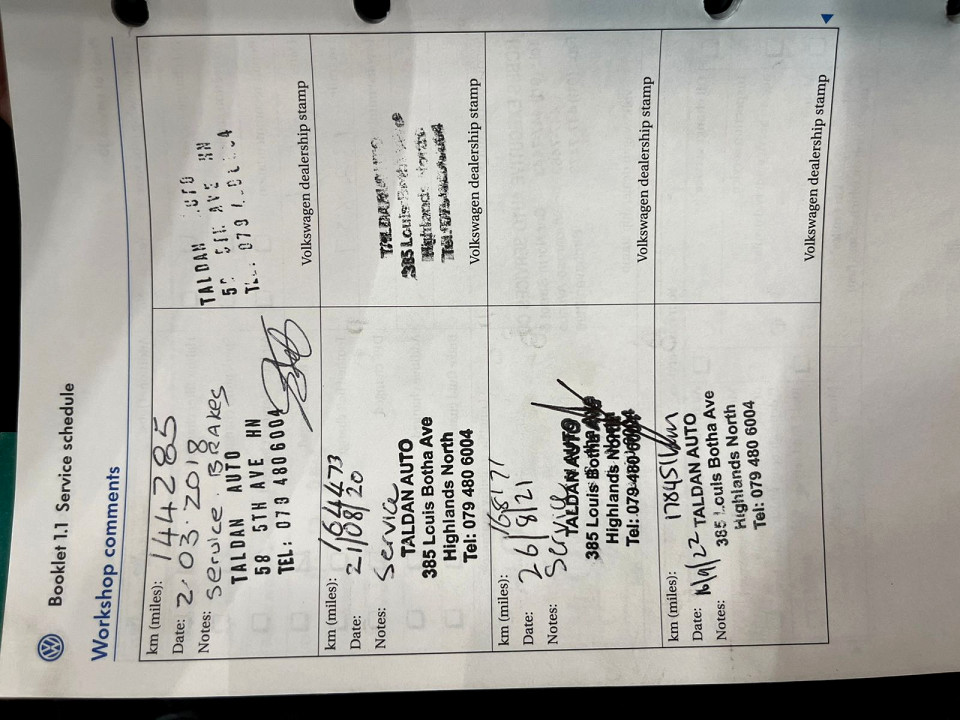 Booklet 1.1 Service schedule
Workshop comments
km (miles): 144285
Date: 2.03.2018
Notes: Service. BRAKES
TALDAN AUTO
58 5TH AVE HN
TEL: 079 4806004
TALDAN
AVE HN
079
Volkswagen dealership stamp
km (miles): 164473
Date: 21/08/20
Notes: Service
TALDAN AUTO
385 Louis Botha Ave
Highlands North
Tel: 079 480 6004
385 Louis Botha
Highlands North
Volkswagen dealership stamp
km (miles): 168171
Date: 26/8/21
Notes: Service
TALDAN AUTO
385 Louis Botha Ave
Highlands North
Tel: 079 480 6004
Volkswagen dealership stamp
km (miles): 17845
Date: 16/9/22 TALDAN AUTO
Notes: 385 Louis Botha Ave
Highlands North
Tel: 079 480 6004
Volkswagen dealership stamp